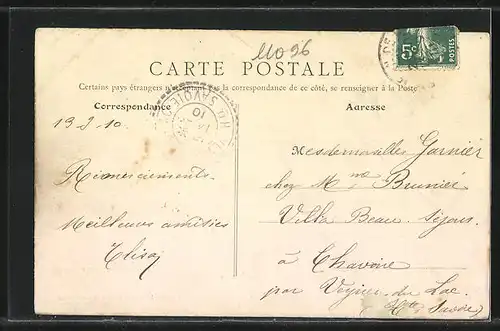 11096
CARTE POSTALE
Certains pays étrangers n'acceptant pas la correspondance de ce côté, se renseigner à la Poste
Correspondance
Adresse
5c
POSTES
Hte SAVOIE
10
13-2-10.
Remerciements
Meilleures amitiés
Elisa
Mesdemoiselles Garnier
chez Mme Brunier
Villa Beau-Séjour
à Chavoire
par Veyrier-du-Lac
Hte Savoie